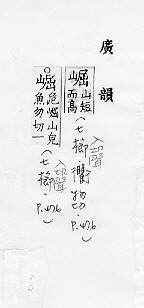 廣韻
崛山短而高
入聲
(七櫛·衢物切·P.476
崛㠢崛山皃魚勿切一
入聲
(七櫛·P.476)